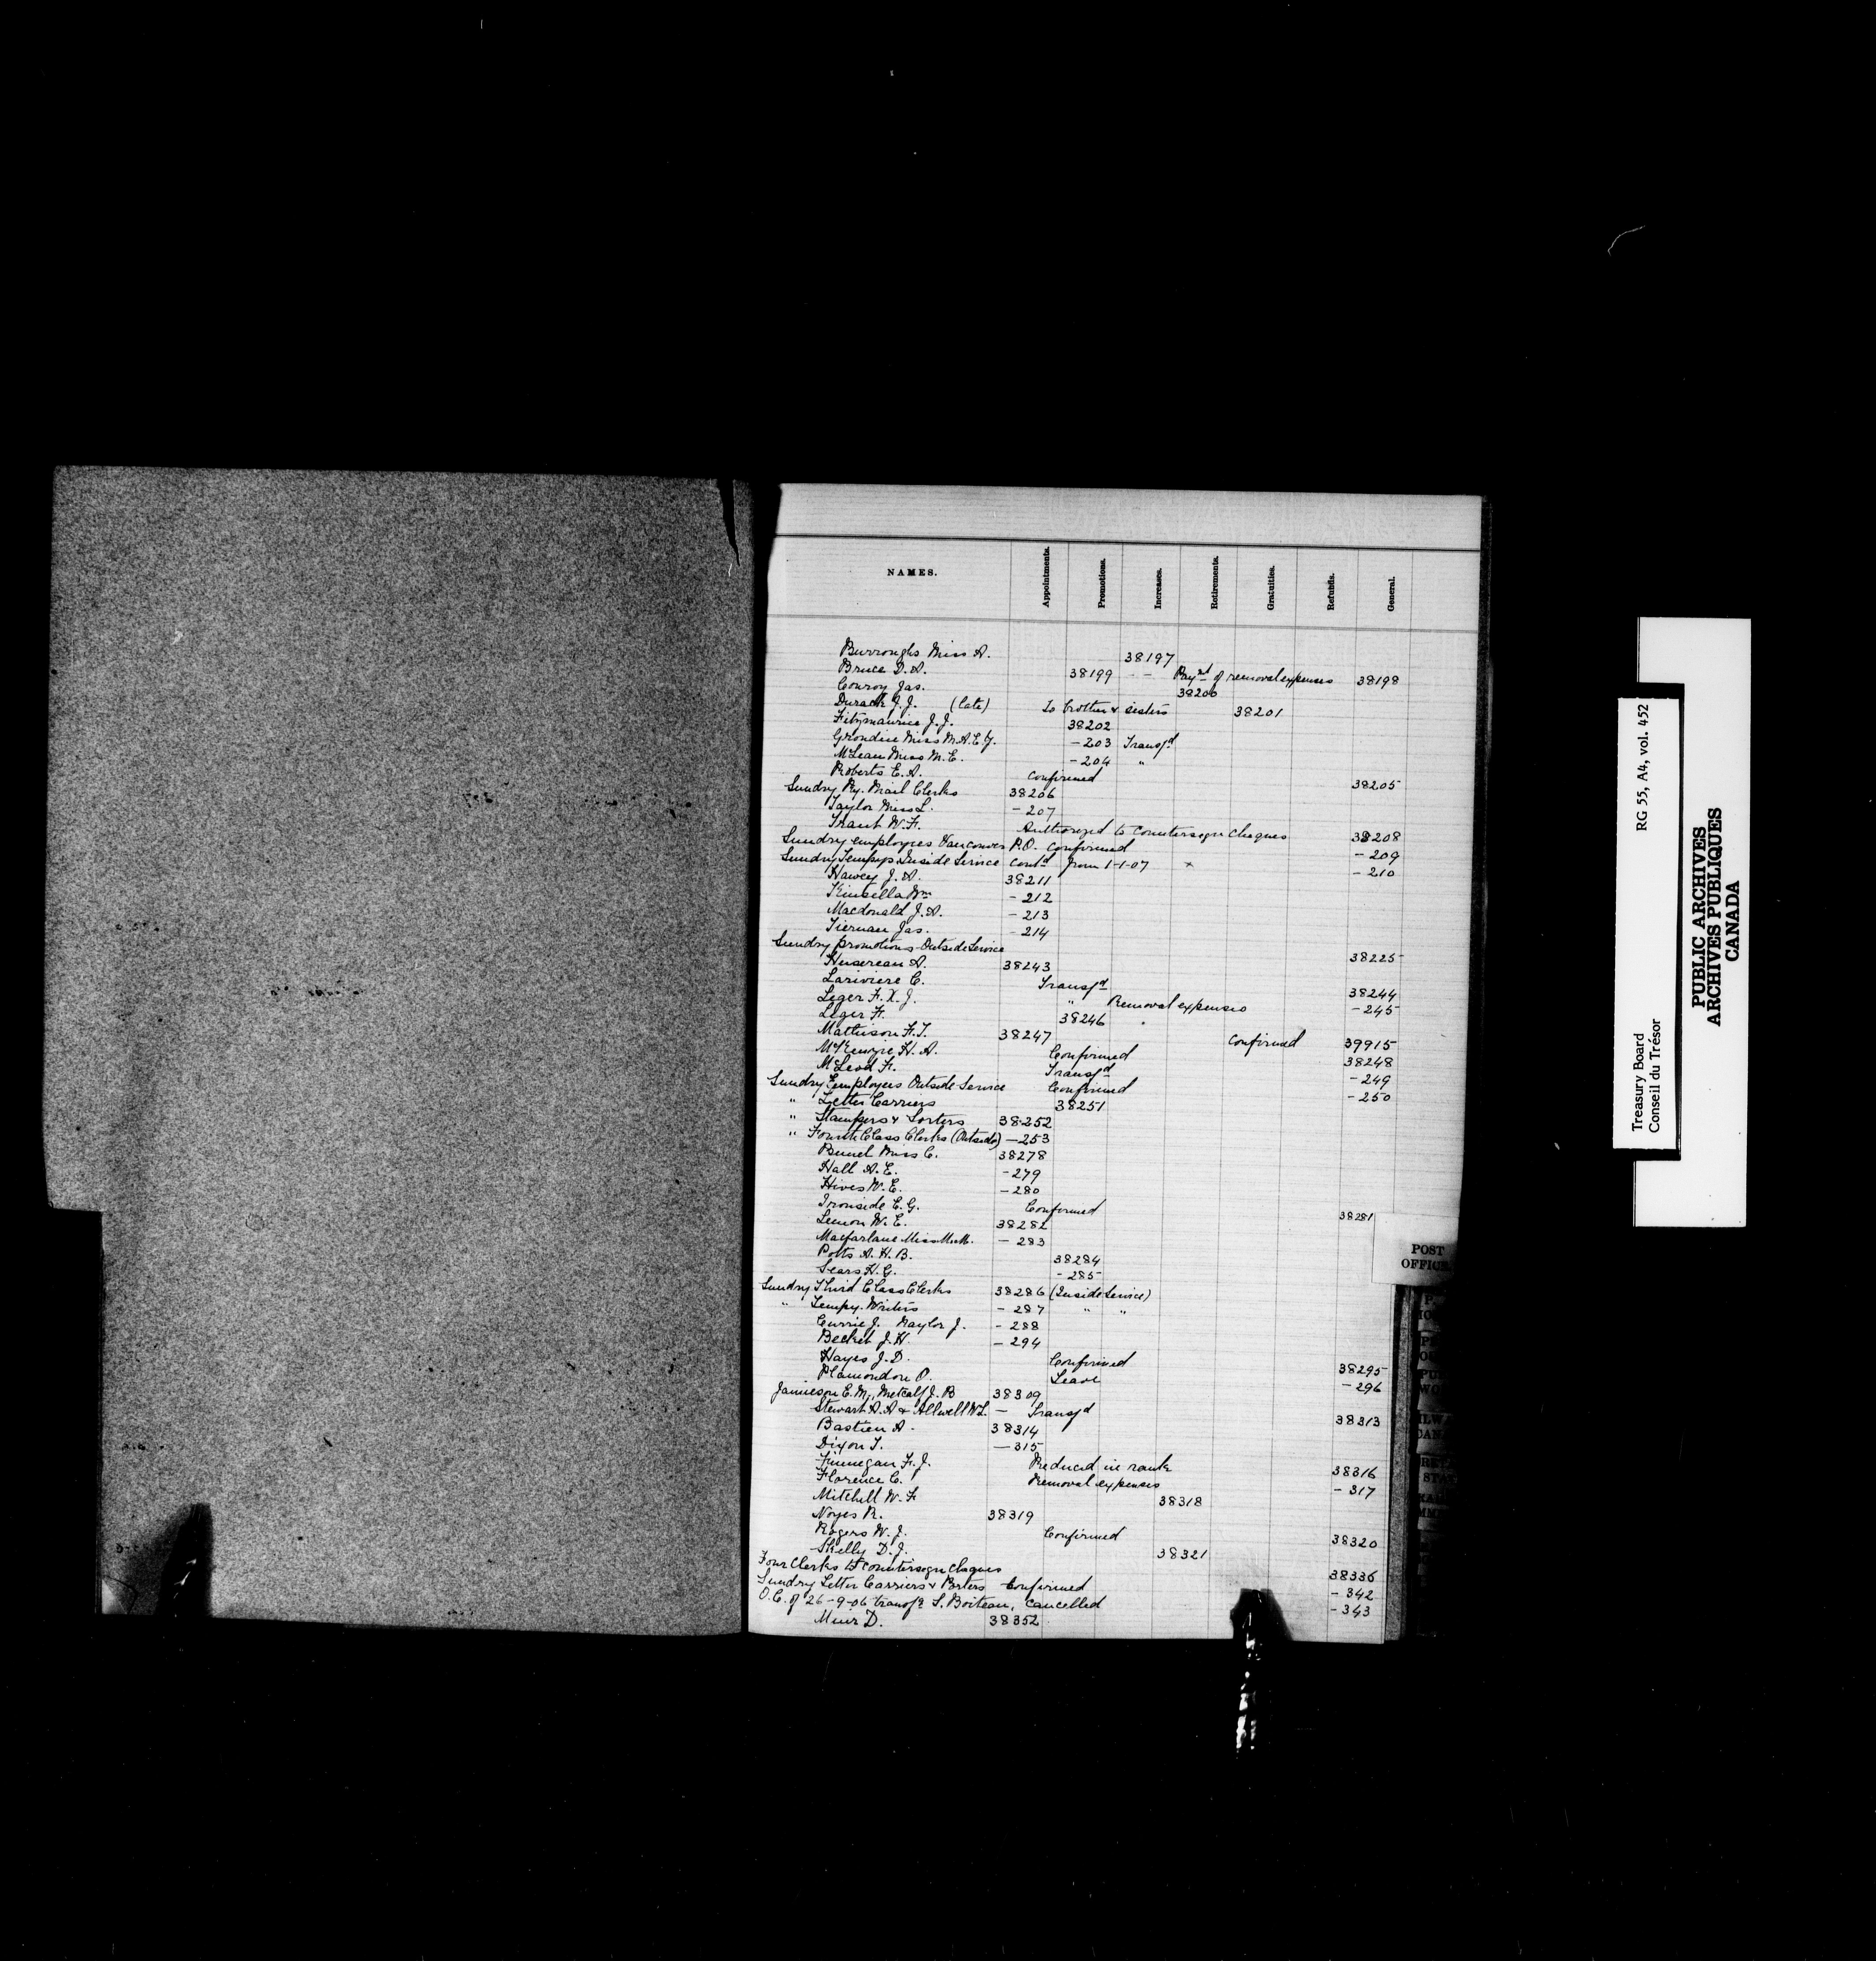 NAMES. Appointments. Promotions. Increases. Retirements. Gratuities. Refunds. General.
Burroughs Miss A. 38197
Bruce D.A. 38199 - - Paymt of removal expenses 38198
Conroy Jas. 38200
Durack J.J. (late) To brother & sisters 38201
Fitzmaurice J.J. 38202
Grondin Miss M.A.E.Y. - 203 Transfd
McLean Miss M.E. - 204 "
Roberts E.A. Confirmed 38205
Sundry Ry. Mail Clerks 38206
Taylor Miss L. - 207
Trant W.F. Authorized to countersign cheques 38208
Sundry employees Vancouver P.O. confirmed - 209
Sundry Tempys Inside Service contd from 1-1-07 × - 210
Hawey J.A. 38211
Kinsella Wm - 212
Macdonald J.A. - 213
Tiernan Jas. - 214
Sundry promotions Outside Service 38225
Husereau A. 38243
Lariviere C. Transfd 38244
Leger F.X.J. " Removal expenses - 245
Leger F. 38246
Mathison F.T. 38247 confirmed 39915
McKenzie H.A. Confirmed 38248
McLeod F. Transfd - 249
Sundry Employees Outside Service Confirmed - 250
" Letter Carriers 38251
" Stampers & Sorters 38252
" Fourth Class Clerks (Outside) - 253
Brunel Miss C. 38278
Hall A.E. - 279
Hives W.E. - 280
Ironside E.G. Confirmed 38281
Lemon W.E. 38282
Macfarlane Miss M.M. - 283
Potts A.H.B. 38284
Sears H.G. - 285
Sundry Third Class Clerks 38286 (Inside Service)
" Tempy. Writers - 287 " "
Currie J. Naylor J. - 288
Becket J.H. - 294
Hayes J.D. Confirmed 38295
Plamondon O. Leave - 296
Jamieson E.M., Metcalf J.B 38309
Stewart A.A & Allwell W.L. - Transfd 38313
Bastien A. 38314
Dixon T. - 315
Finnegan F.J. Reduced in rank 38316
Florence C. Removal expenses - 317
Mitchell W.F 38318
Noyes R. 38319
Rogers W.J. Confirmed 38320
Skelly D.J. 38321
Four Clerks to countersign cheques 38336
Sundry Letter Carriers & Porters Confirmed - 342
O.C. of 26-9-06 transfg S. Boiteau, cancelled - 343
Muir D. 38352
POST
OFFICE
Treasury Board RG 55, A4, vol. 452
Conseil du Trésor
PUBLIC ARCHIVES
ARCHIVES PUBLIQUES
CANADA